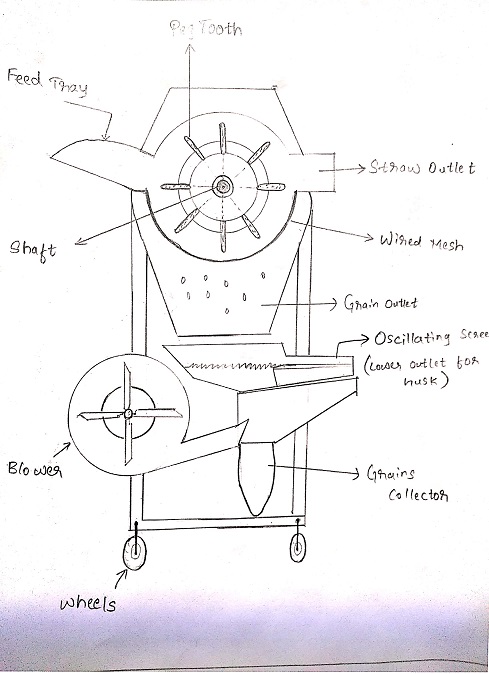 Peg Tooth
Feed Tray
Straw Outlet
Shaft
Wired Mesh
Grain Outlet
Oscillating Scree
(Lower outlet for
husk)
Blower
Grains
Collector
Wheels